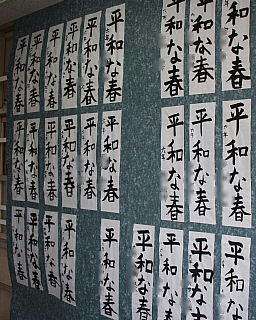 平和な春
平和な春
平和な春
平和な春
平和な春
平和な春
平和な春
平和な春
平和な春
平和な春
平和な春
平和な春
平和な春
平和な春
平和な春
平和な春
平和な春
平和な春
平和な春
平和な春
平和な春
平和な春
平和な春
平和な春
平和な春
平和な春
平和な春